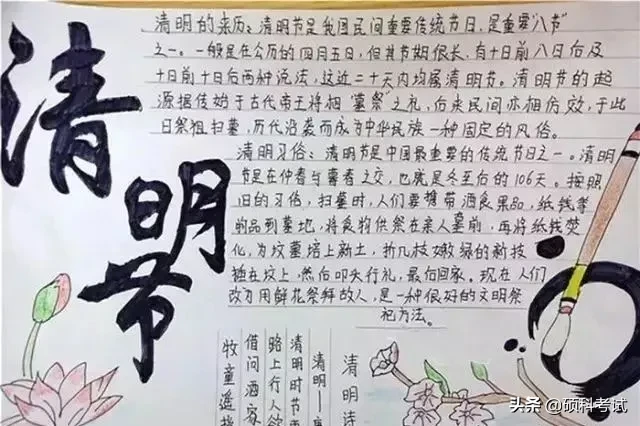 清明节
清明的来历：清明节是我国民间重要传统节日，是重要"八节"
之一。一般是在公历的四月五日，但其节期很长，有十日前八日后及
十日前十日后两种说法，这近二十天内均属清明节。清明节的起
源据传始于古代帝王将相"墓祭"之礼，后来民间亦相仿效，于此
日祭祖扫墓，历代沿袭而成为中华民族一种固定的风俗。
清明习俗：清明节是中国最重要的传统节日之一。清明
节是在仲春与暮春之交，也就是冬至后的106天。按照
旧的习俗，扫墓时，人们要携带酒食果品，纸钱等
物品到墓地，将食物供祭在亲人墓前，再将纸钱焚
化，为坟墓培上新土，折几枝嫩绿的新枝
插在坟上，然后叩头行礼，最后回家。现在人们
改为用鲜花祭拜故人，是一种很好的文明祭
祀方法。
清明诗
清明——
清明时节
路上行人欲
借问酒家
牧童遥指
头条 @硕科考试